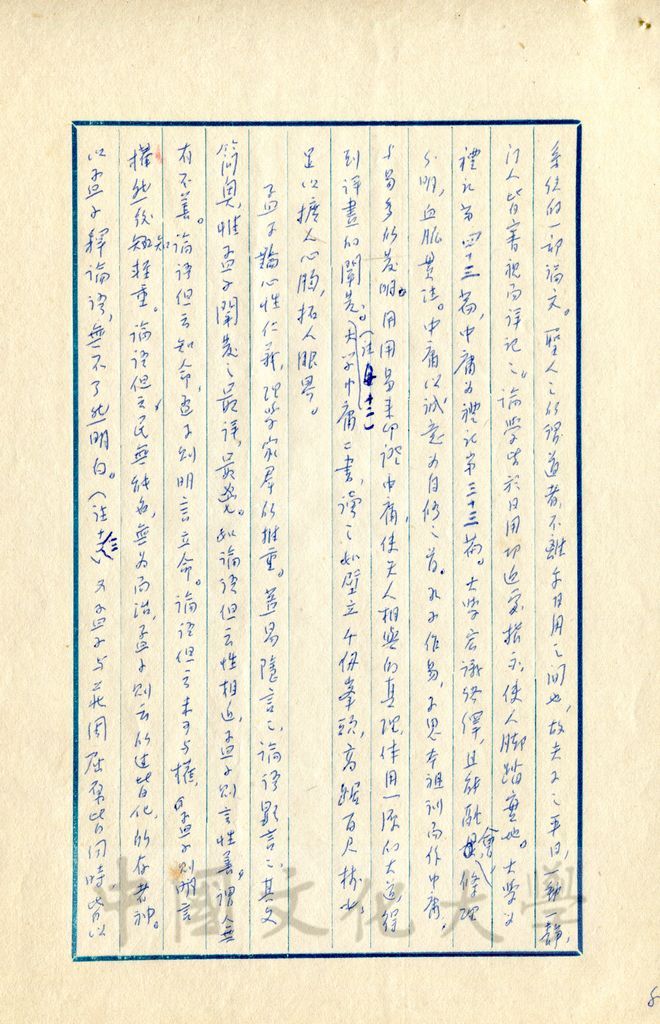 系統的一部論文。聖人之所謂道者,不離乎日用之間也,故夫子之平日,一動一靜,
門人皆審視而詳記之。論學皆於日用切近處指示,使人脚踏實地。大學為
禮記第四十二篇,中庸為禮記第三十三篇。大學
分明,血脈貫注。中庸以誠意為自修之首。孔子作易,子思本祖訓而作中庸,
與易多所發明。用周易來印證中庸,使天人相與的真理,体用一源的大道,得
到詳盡的闡發。(註十二)大學中庸二書,讀之如壁立千仞峯頭,高踞百尺
足以擴人心胸,拓人眼界。
孟子論心性仁義,理學家羣所推重。蓋易隱言之,論語顯言之,其文
簡奧,惟孟子闡發之最詳,最。如論語但言性相近,孟子則言性善。謂無
有不善。論語但云知命,孟子則明言立命。論語但言未可與權,孟子則明言
權然後知輕重。論語但云民無能名,無為而治,孟子則云所過皆化,所存者神。
以孟子釋論語,無不了然明白。(註十三)又孟子與莊周屈原皆同時皆以
中國文化大學
8